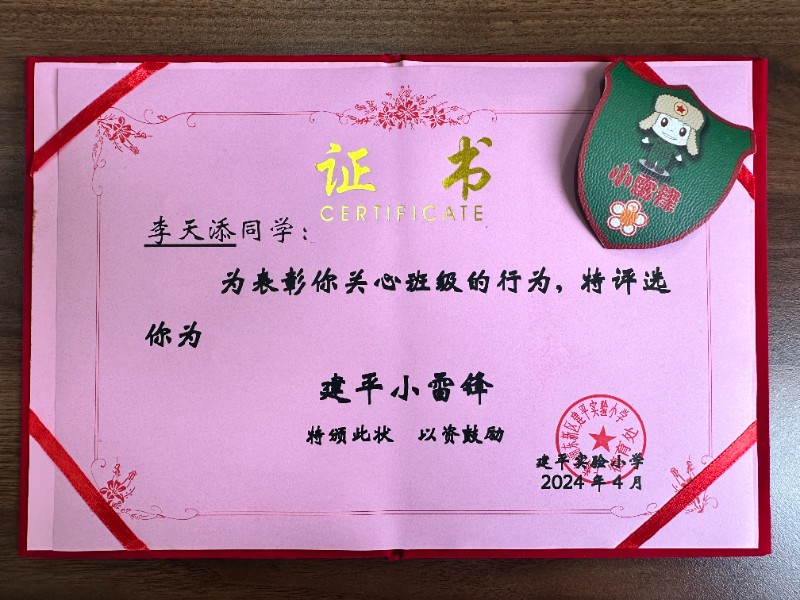 证书
CERTIFICATE
小雷锋
李天添同学：
为表彰你关心班级的行为，特评选
你为
建平小雷锋
特颁此状 以资鼓励
建平实验小学
2024年4月